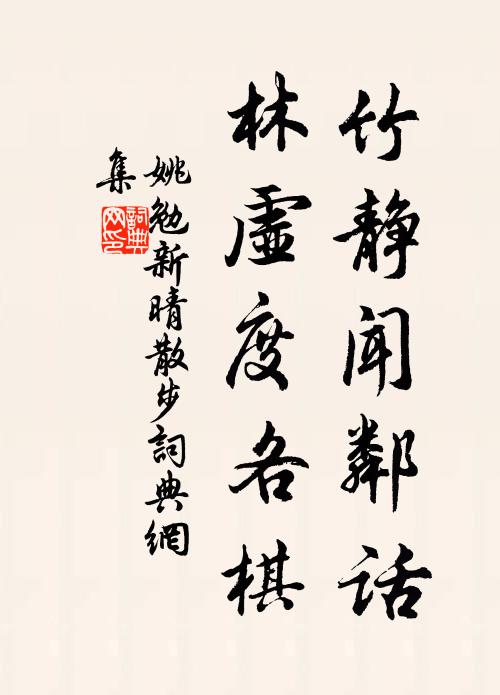 竹静闻鄰话
林虚度各棋
姚勉新晴散步詞典網
集
詞典网印